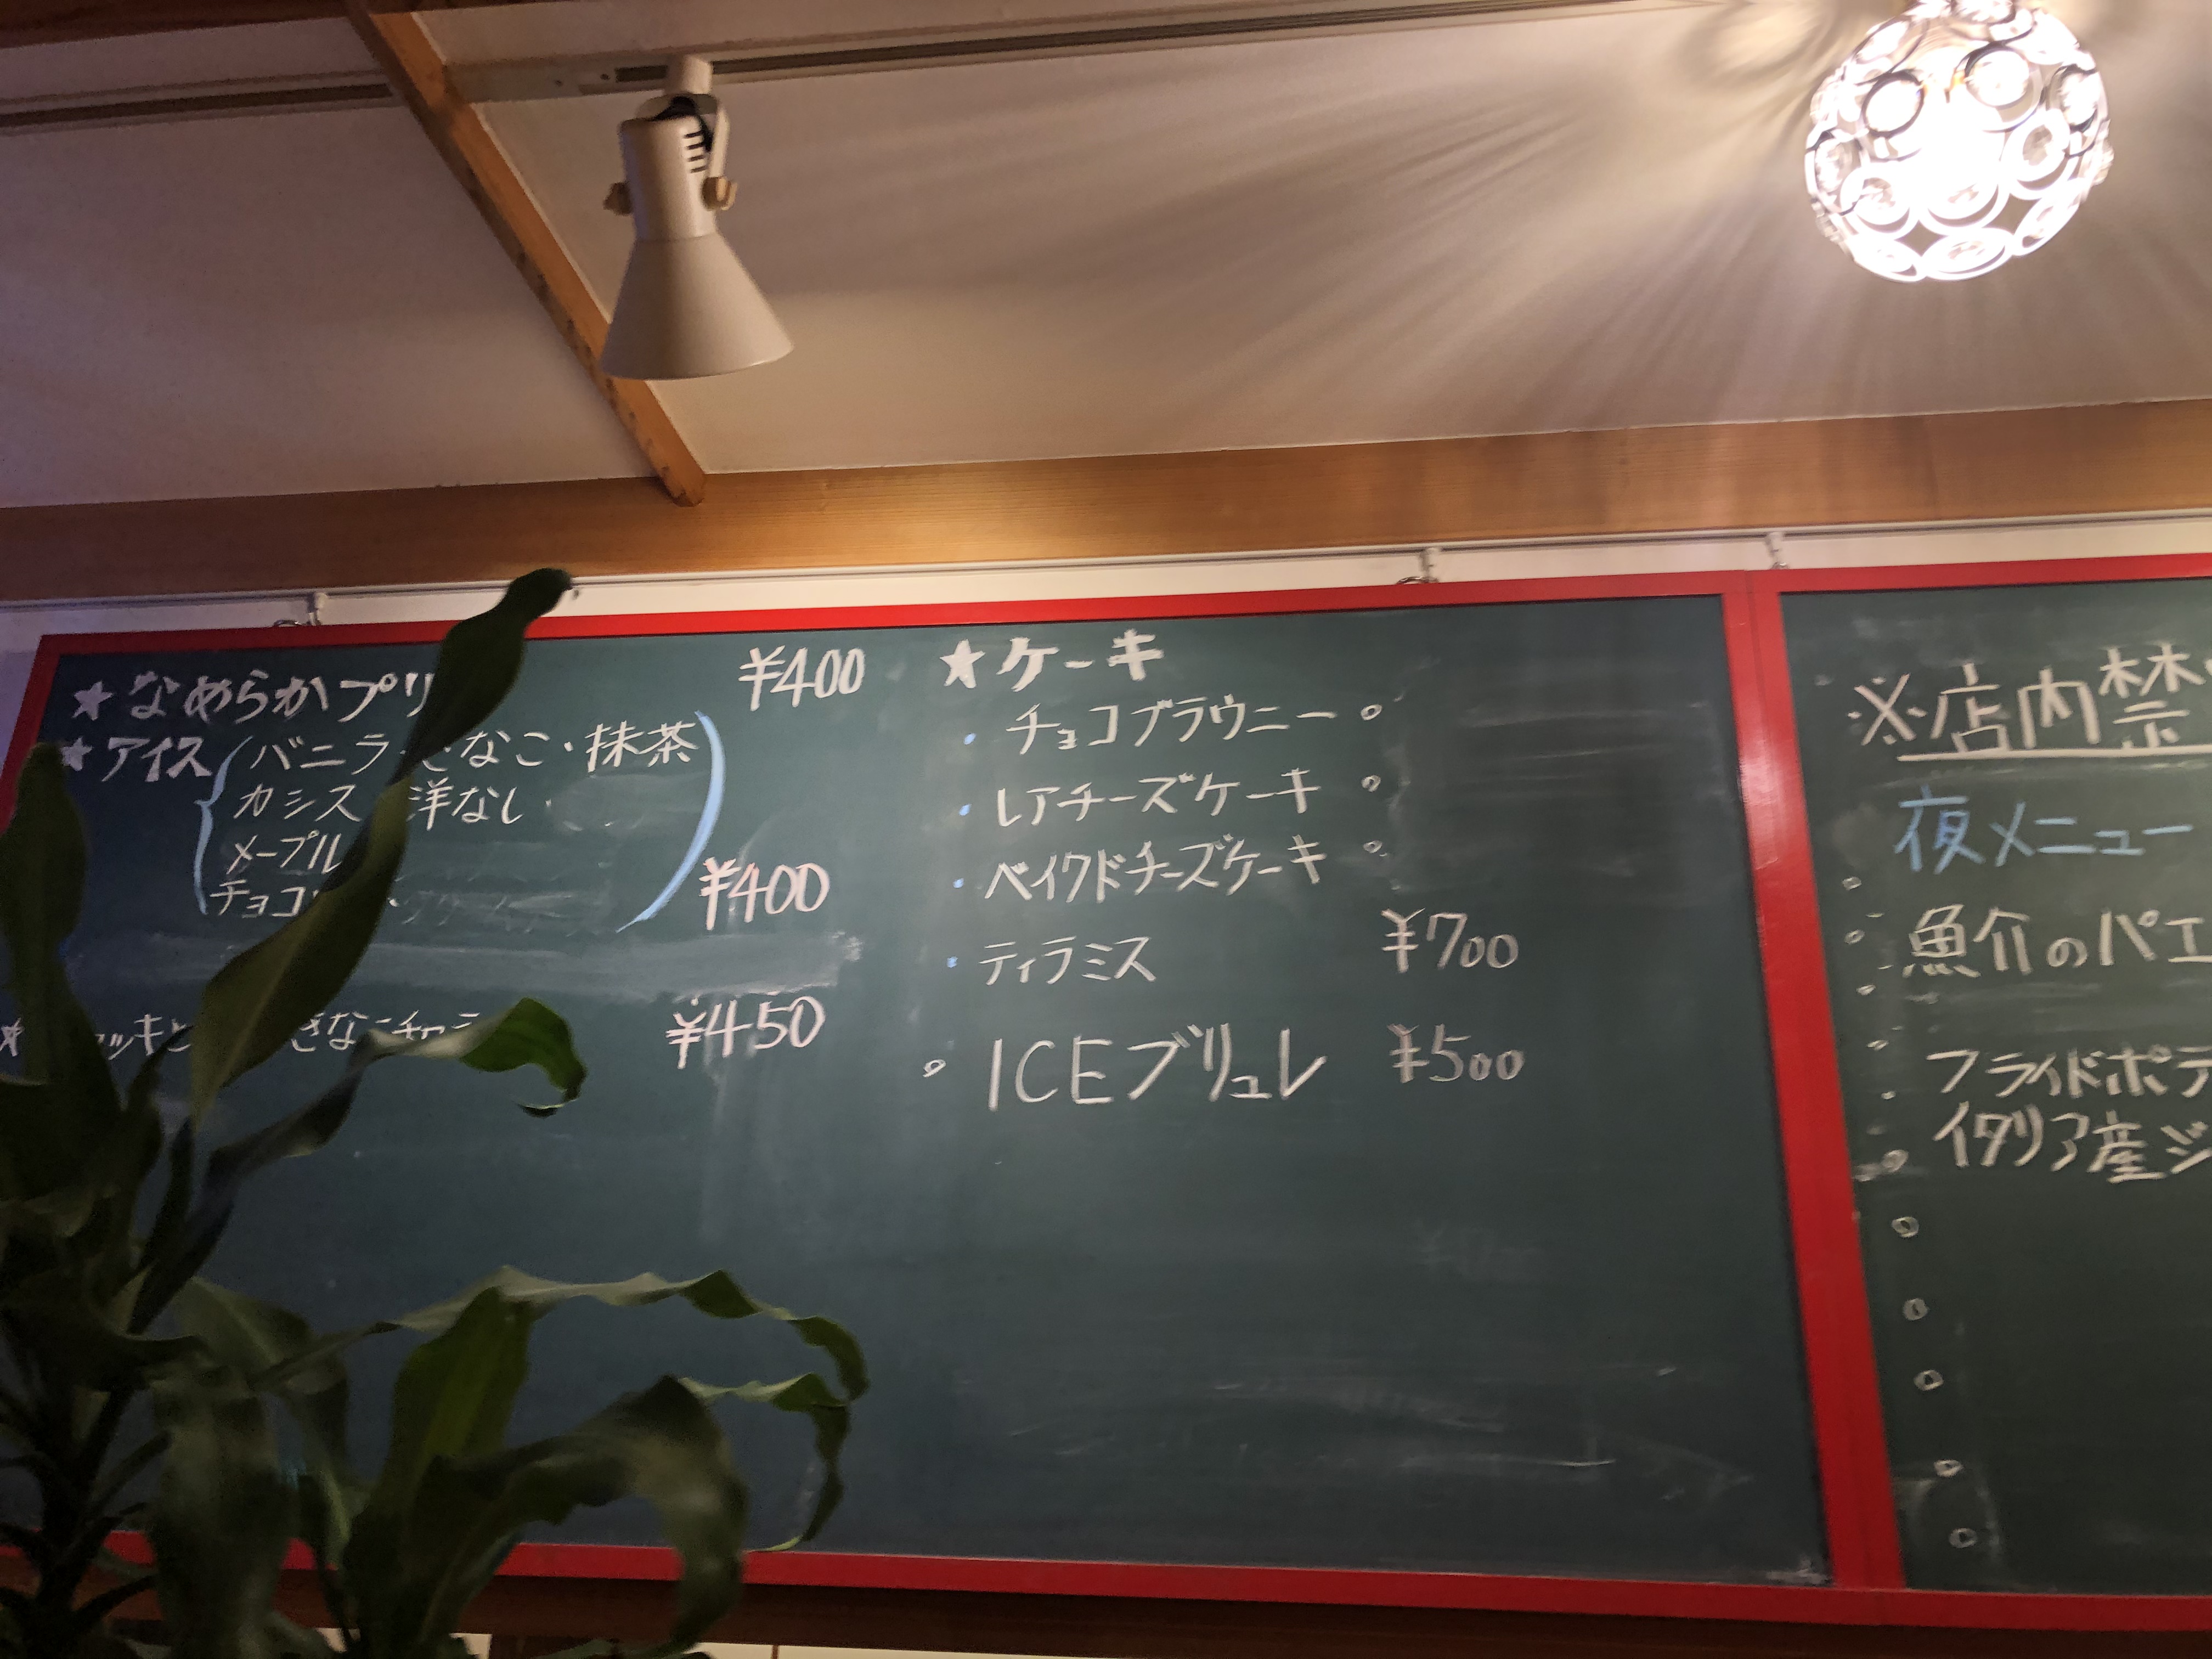 ★なめらかプリ ¥400
★アイス(バニラ・きなこ・抹茶
カシス 洋なし・
メープル
チョコ ・) ¥400
¥450
★ケーキ
・チョコブラウニー○
・レアチーズケーキ○
・ベイクドチーズケーキ○
・ティラミス ¥700
○ICEブリュレ ¥500
※店内禁
夜メニュー
魚介のパエ
フライドポテ
イタリア産ジ